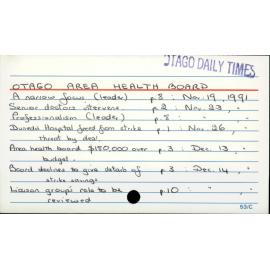 OTAGO DAILY TIMES
OTAGO AREA HEALTH BOARD
A narrow focus (leader) p.8 : Nov. 19, 1991
Senior doctors intervene p.2 : Nov. 23, "
Professionalism (leader) p.8 : " "
Dunedin Hospital freed from strike p.1 : Nov. 26, "
threat by deal
Area health board $150,000 over p.3 : Dec. 13, "
budget.
Board declines to give details of p.3 : Dec. 14, "
strike savings
Liaison groups role to be p.10 : " "
reviewed
53/C